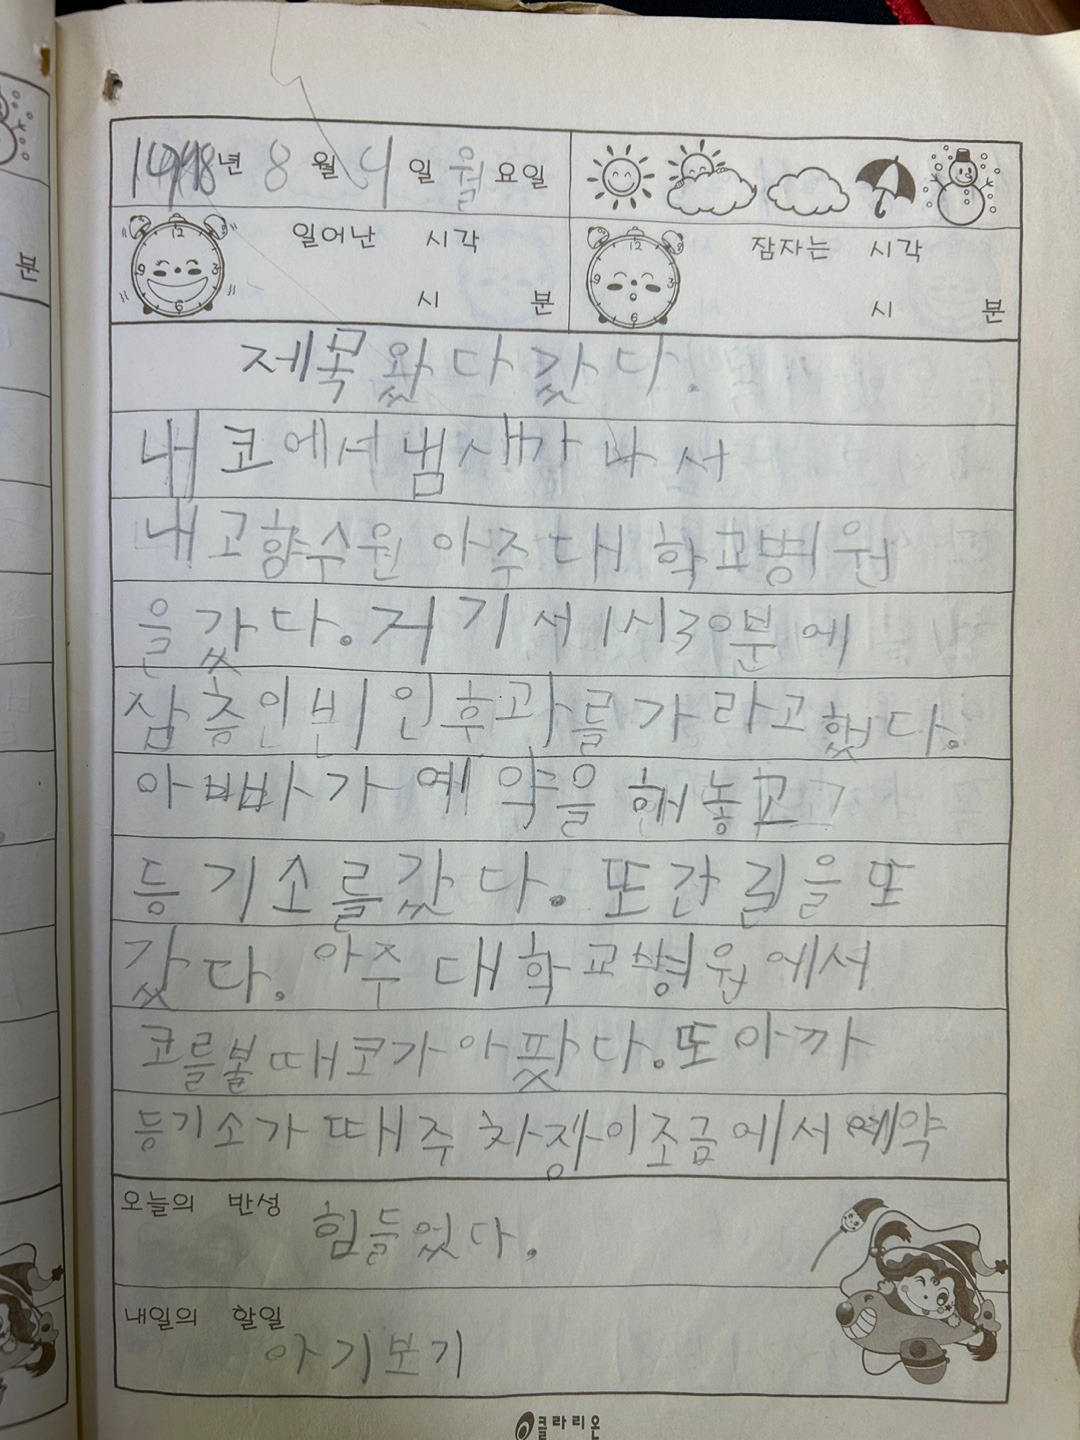 년 8 월 일 월 요일
일어난 시각
시 분
잠자는 시각
시 분
분
제목 왔다 갔다.
내 코에서 냄새가 나서
내고향수원 아주대 학교병원
을 갔다. 저기서 1시30분에
삼층인 비인후과를 가라고 했다.
아빠가 예약을 해놓고
등기소를 갔다. 또간 길을 또
갔다. 아주대학교병원에서
코를볼때코가아팟다. 또아까
등기소가 때 주차장이조금에서 예약
오늘의 반성
힘들었다.
내일의 할일
아기보기
클라리온